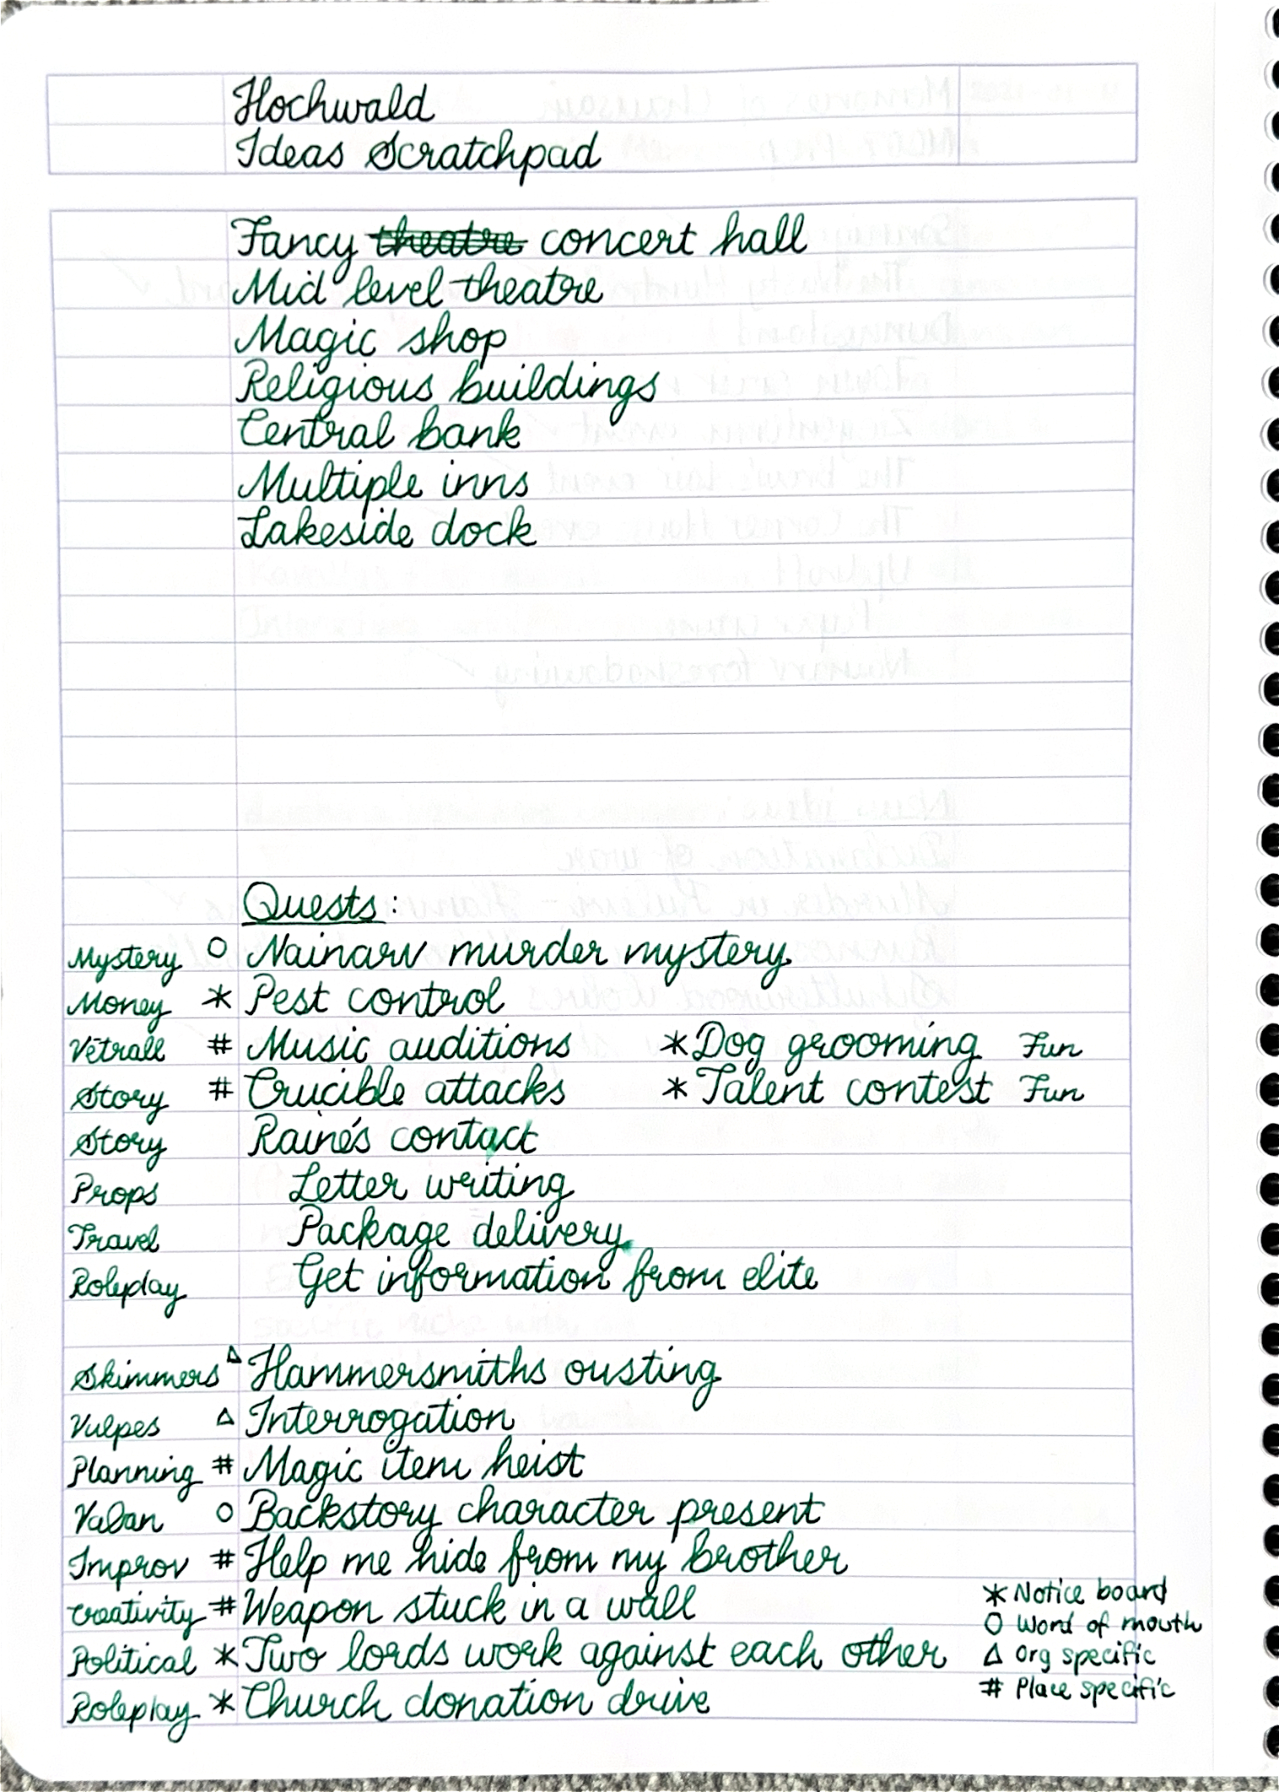 Hochwald
Ideas Scratchpad
Fancy theatre concert hall
Mid level theatre
Magic shop
Religious buildings
Central bank
Multiple inns
Lakeside dock
Quests:
Mystery O Nainarv murder mystery
Money * Pest control
Vetrall # Music auditions * Dog grooming Fun
Story # Crucible attacks * Talent contest Fun
Story Raine's contact
Props Letter writing
Travel Package delivery
Roleplay Get information from elite
Skimmers △ Hammersmiths ousting
Vulpes △ Interrogation
Planning # Magic item heist
Valan O Backstory character present
Improv # Help me hide from my brother
Creativity # Weapon stuck in a wall
* Notice board
O Word of mouth
Political * Two lords work against each other
△ Org specific
# Place specific
Roleplay * Church donation drive